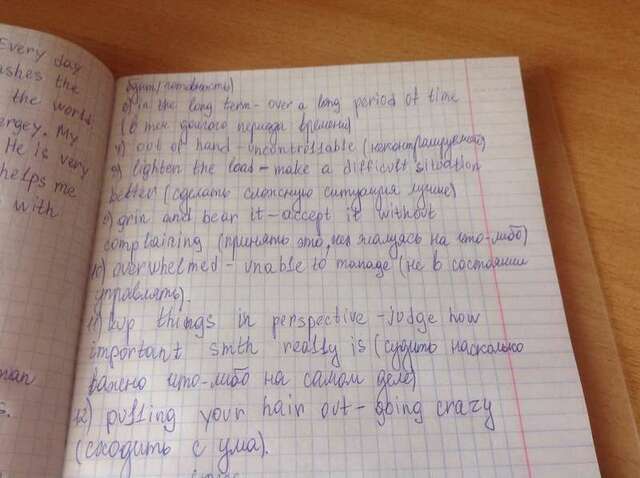 Every day
ashes the
the world.
ergey. My
He is very
helps me
with
man
s.
6) in the long term - over a long period of time
(в теч. долгого периода времени)
7) out of hand - uncontrollable (неконтролируемой)
8) lighten the load - make a difficult situation
better (сделать сложную ситуация лучше)
9) grin and bear it - accept it without
complaining (принять это, не жалуясь на что-либо)
10) overwhelmed - unable to manage (не в состоянии
управлять).
11) kup things in perspective - judge how
important smth really is (судить насколько
важено что-либо на самом деле)
12) pulling your hair out - going crazy
(сходить с ума).